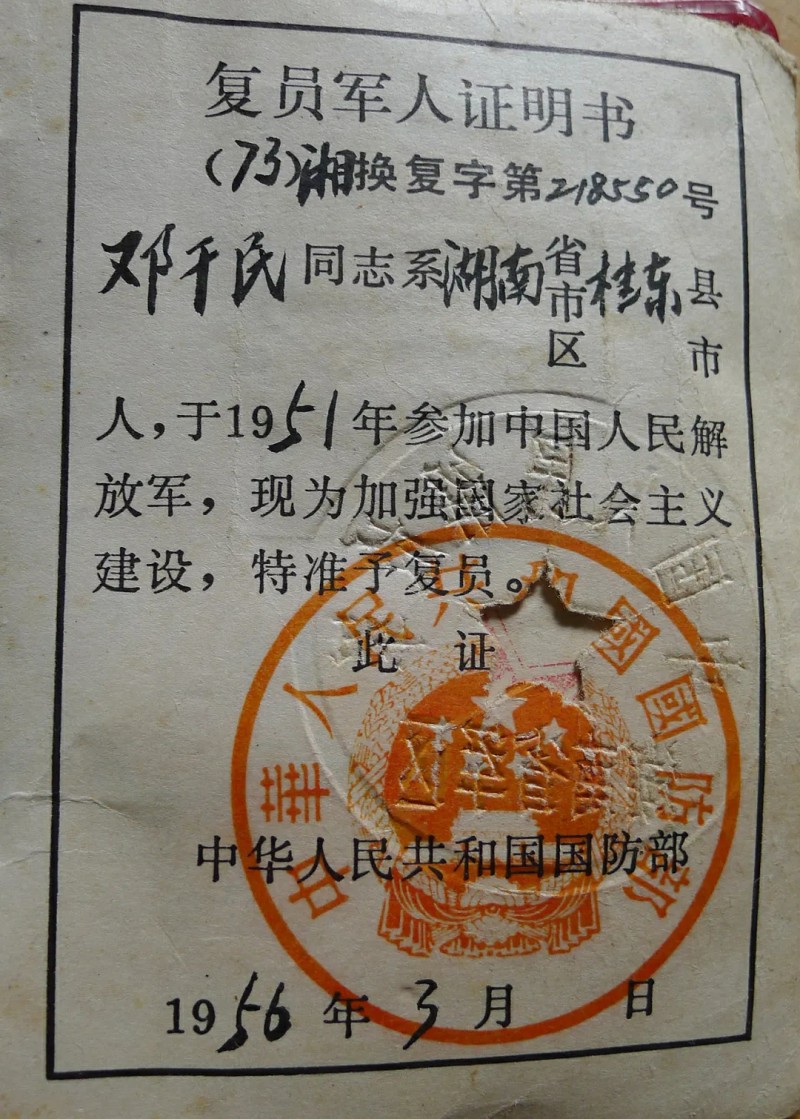 复员军人证明书
(73)湘换复字第218550号
邓干民同志系湖南省市区桂东县市
人，于1951年参加中国人民解
放军，现为加强国家社会主义
建设，特准予复员。
此 证
中华人民共和国国防部
中华人民共和國國防部
1956年3月 日